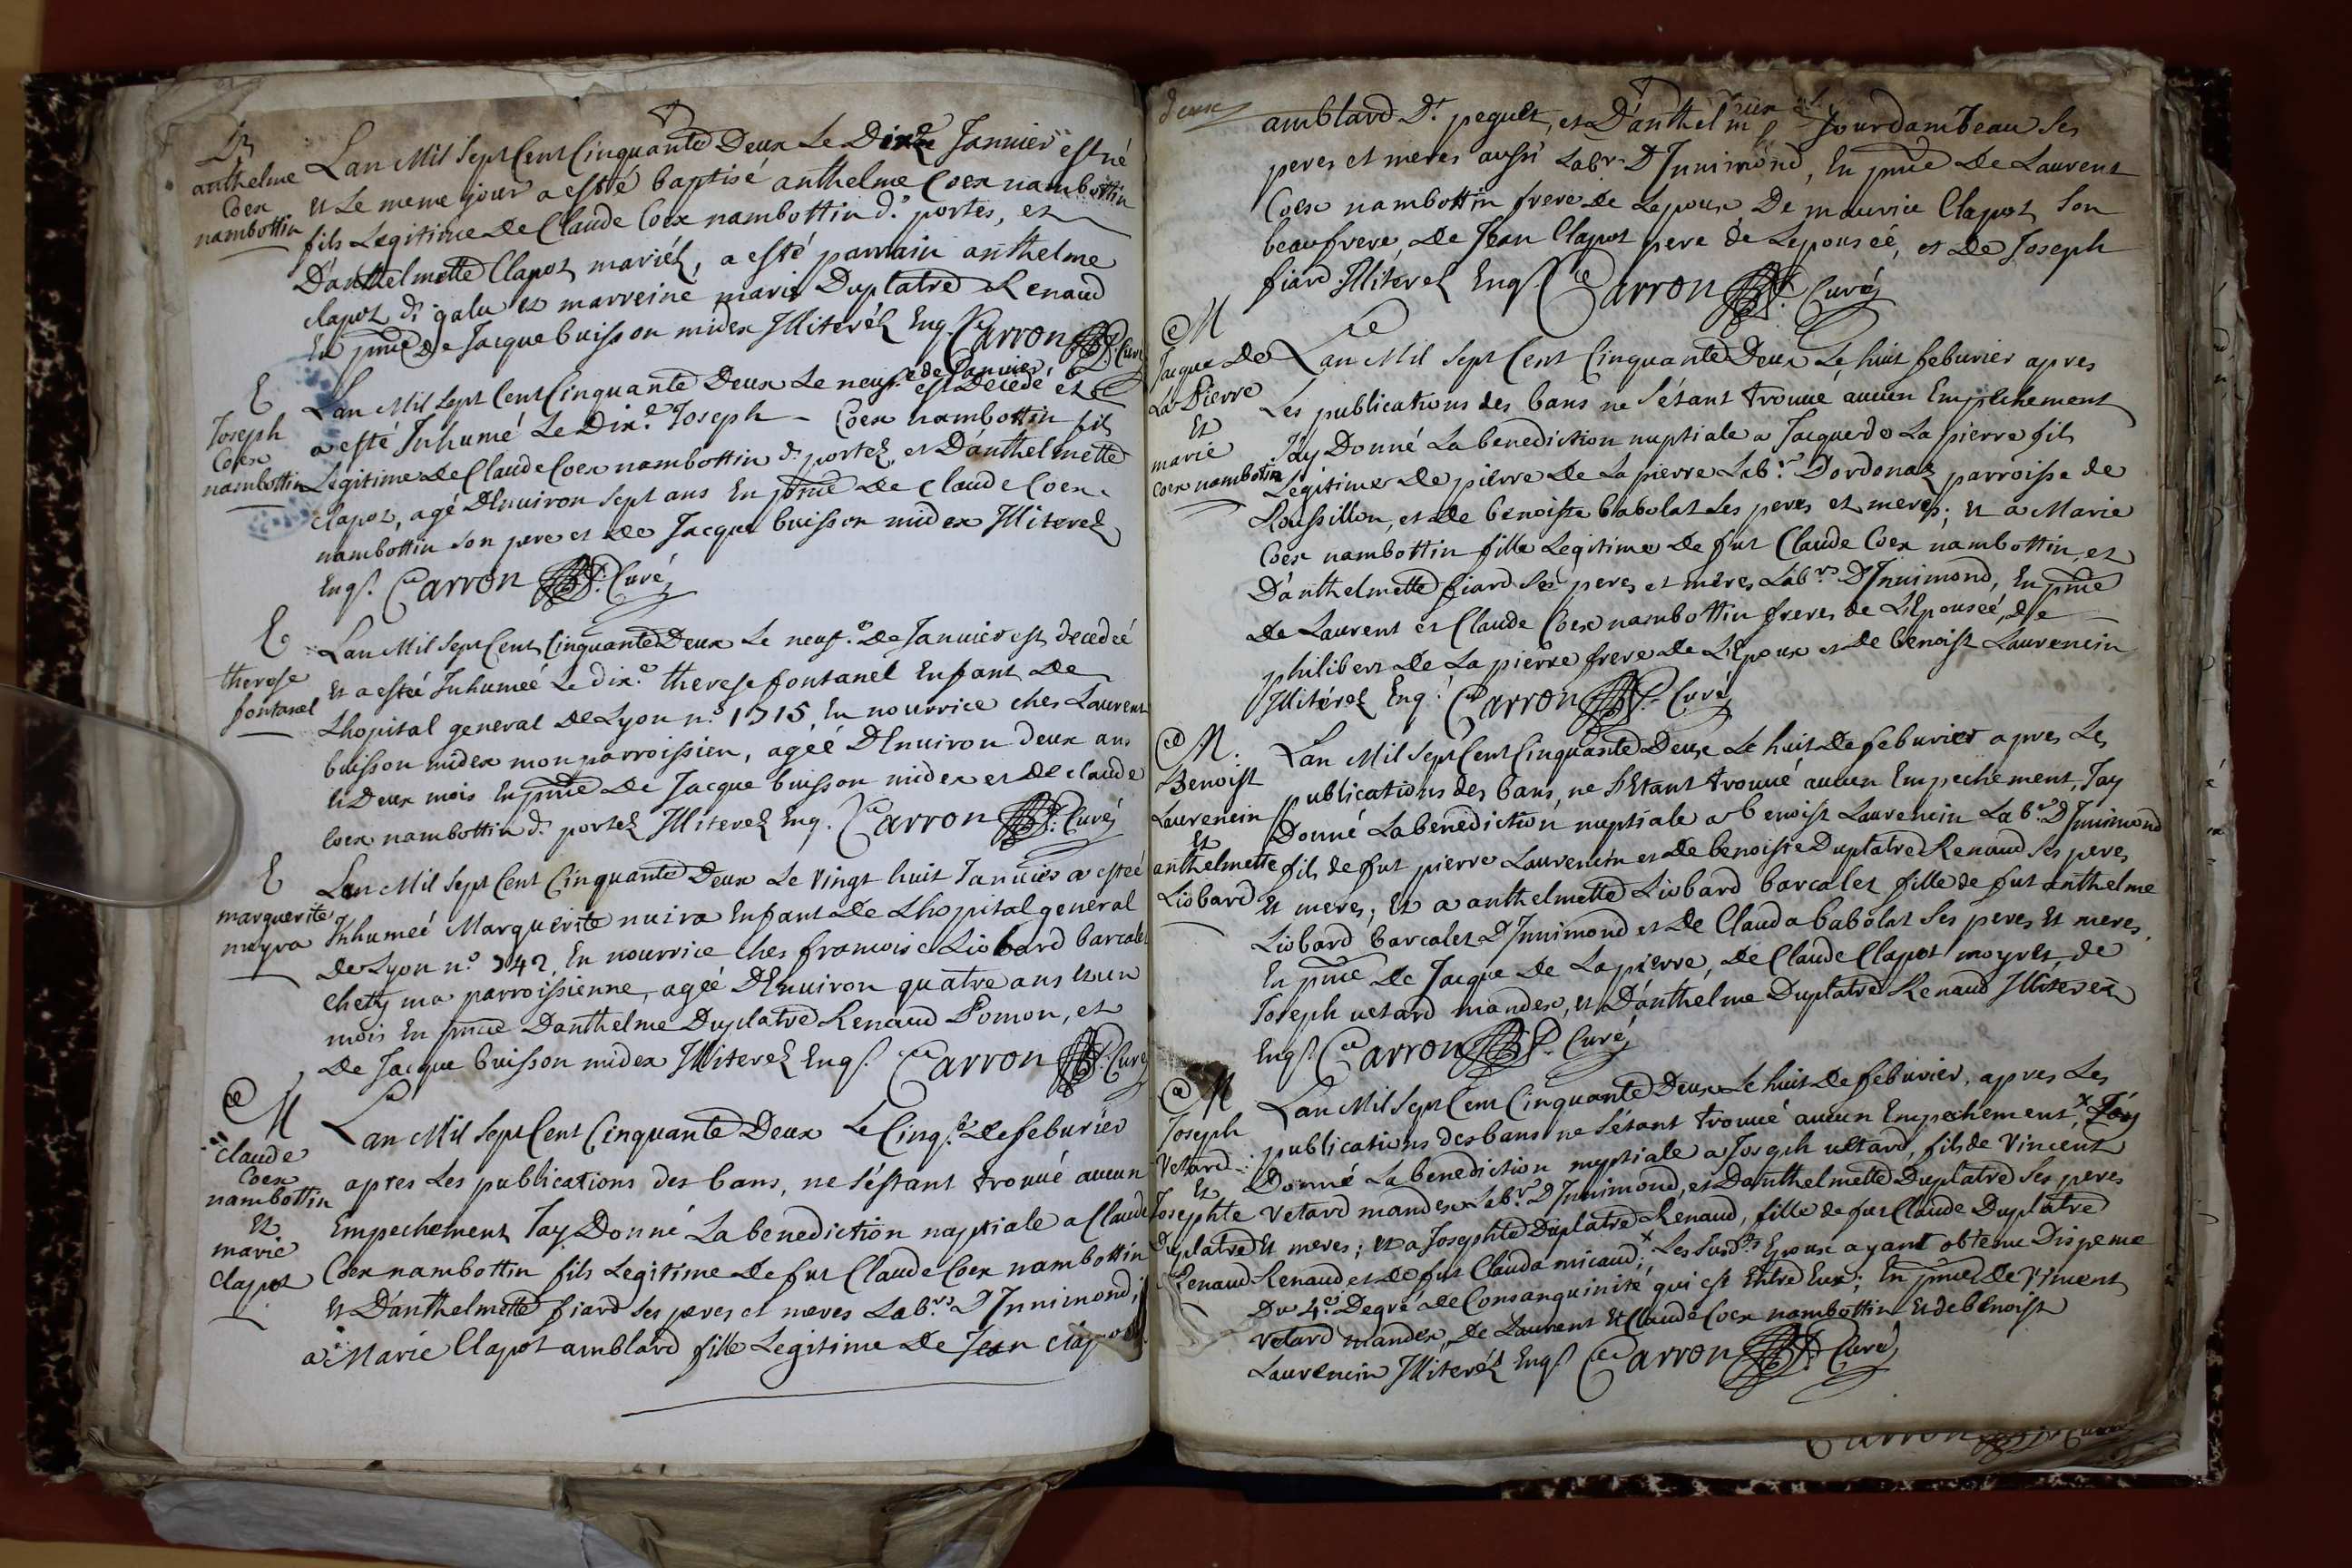 B
anthelme
Coex
nambottin
Lan Mil Sept Cent Cinquante Deux Le Dixe Janvier est né
et Le meme jour a esté baptisé anthelme Coex nambottin
fils Legitime de Claude Coex nambottin dt. portes, et
D'anthelmette Clapot mariéz, a esté parrain anthelme
clapot dt. galu et marreine marie Duplatre Renaud
En pnce De Jacque buisson midex Illiteréz Enqs. Carron Curé
E
Joseph
Coex
nambottin
Lan Mil Sept Cent Cinquante Deux Le neufe de Janvier est Decedé et
a esté Inhumé Le Dix.e Joseph - Coex nambottin fils
Legitime De Claude Coex nambottin dt. portez, et Danthelmette
clapot, agé D'Environ Sept ans En pnce De Claude Coex
nambottin son pere et De Jacque buisson midex Illiterez
Enqs. Carron Curé
E
therese
fontanel
Lan Mil Sept Cent Cinquante Deux Le neuf.e De Janvier est decedeé
et a esteé Inhumeé Le dix.e therese fontanel Enfant De
Lhopital general De Lyon n.o 1715, En nourrice ches Laurent
buisson midex mon parroissien, agéé D'Environ deux ans
et Deux mois En pnce De Jacque buisson midex et De claude
Coex nambottin dt. portez Illiterez Enq. Carron Curé
E
marguerite
mayra
Lan Mil Sept Cent Cinquante Deux Le vingt huit Janvier a esteé
Inhumeé Marguerite muira Enfant De Lhopital general
De Lyon n.o 742, En nourrice ches francoise Liobard barcalet
Chetty ma parroissienne, agéé D'Environ quatre ans et un
mois En pnce Danthelme Duplatre Renaud Pomon, et
De Jacque buisson midex Illiterez Enqs. Carron Curé
M
Claude
Coex
nambottin
Et
marie
clapot
Lan Mil Sept Cent Cinquante Deux Le Cinq.e De feburier
apres Les publications des bans, ne s'éstant trouvé aucun
Empechement Jay Donné La benediction nuptiale a Claude
Coex nambottin fils Legitime de fut Claude Coex nambottin
et D'anthelmette fiard ses peres et meres Lab.rs D'Innimond;
a Marie Clapot amblard fille Legitime De Jean Clapot
deux
amblard Dt. pequet, et D'anthelm Jourdam beau ses
peres et meres aussi Labrs D'Innimond, En pnce De Laurent
Coex nambottin frere de Lepoux, De maurice Clapot Son
beaufrere, De Jean Clapot pere de Lepouséé, et De Joseph
fiard Illiterez Enqs. Carron Curé
M
Jacque De
La Pierre
Et
marie
Coex nambottin
Lan Mil Sept Cent Cinquante Deux Le huit feburier apres
Les publications des bans ne s'étant trouvé aucun Empechement
Jay Donné La benediction nuptiale a Jacque De La pierre fils
Légitime De pierre De La pierre Lab.r D'ordonaz parroisse de
Roussillon, et De benoiste babolat Ses peres et meres; et a Marie
Coex nambottin fille Legitime De fut Claude Coex nambottin et
D'anthelmette fiard Ses peres et mères Lab.rs D'Innimond, En pnce
De Laurent et Claude Coex nambottin freres de L'Epouseé, De
philibert De La pierre frere De L'Epoux et De benoist Laurencin
Illitérez Enq. Carron Curé
M.
Benoist
Laurencin
Et
anthelmette
Liobard
Lan Mil Sept Cent Cinquante Deux Le huit De feburier apres Les
publications des bans, ne s'Etant trouvé aucun Empechement, Jay
Donné La benediction nuptiale a benoist Laurencin Lab.r D'Innimond
fils de fut pierre Laurencin et De benoiste Duplatre Renaud Ses peres
Et meres; Et a anthelmette Liobard barcalet fille de fut anthelme
Liobard barcalet D'Innimond et De Clauda babolat Ses peres Et meres,
En pnce De Jacque De Lapierre, De Claude Clapot moyret, de
Joseph vetard mandex, et D'anthelme Duplatre Renaud Illiterez
Enqs. Carron Curé
M
Joseph
Vetard
Et
Josephte
Duplatre
Renaud
Lan Mil Sept Cent Cinquante Deux Le huit De feburier, apres Les
publications des bans ne s'étant trouvé aucun Empechement, x Jáy
Donné La benediction nuptiale a Joseph vetard, fils de Vincent
Vetard mandex Lab.r D'Innimond, et D'anthelmette Duplatre Ses peres
Et meres; et a Josephte Duplatre Renaud, fille de fut Claude Duplatre
Renaud et De fut Clauda micaud; x Les Susd.ts Epoux ayant obtenu Dispense
Du 4.e Degré De Consanguinité qui est Entre Eux; En pnce De Vincent
vetard mandex, De Laurent Et Claude Coex nambottin Et de benoist
Laurencin Illiteréz Enqs Carron Curé
Carron Curé